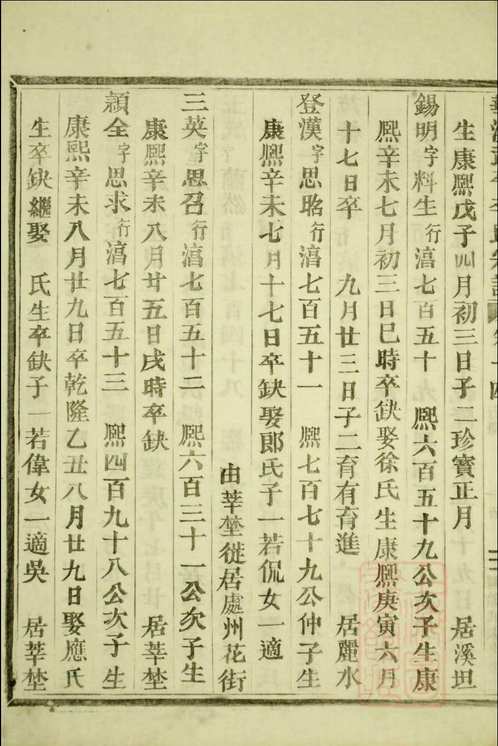 生康熙戊子四月初三日子二珍寶正月 居溪坦
錫明字料生行濇七百五十 熙六百五十九公次子生康
熙辛未七月初三日巳時卒缺娶徐氏生康熙庚寅六月
十七日卒 九月廿三日子二育有育進 居麗水
登漢字思昭行濇七百五十一 熙七百七十九公仲子生
康熙辛未七月十七日卒缺娶郎氏子一若侃女一適
由莘塟徙居處州花街
三英字思召行濇七百五十二 熙六百三十一公次子生
康熙辛未八月廿五日戌時卒缺 居莘塟
穎全字思求行濇七百五十三 熙四百九十八公次子生
康熙辛未八月廿九日卒乾隆乙丑八月廿九日娶應氏
生卒缺繼娶 氏生卒缺子一若偉女一適吳 居莘塟